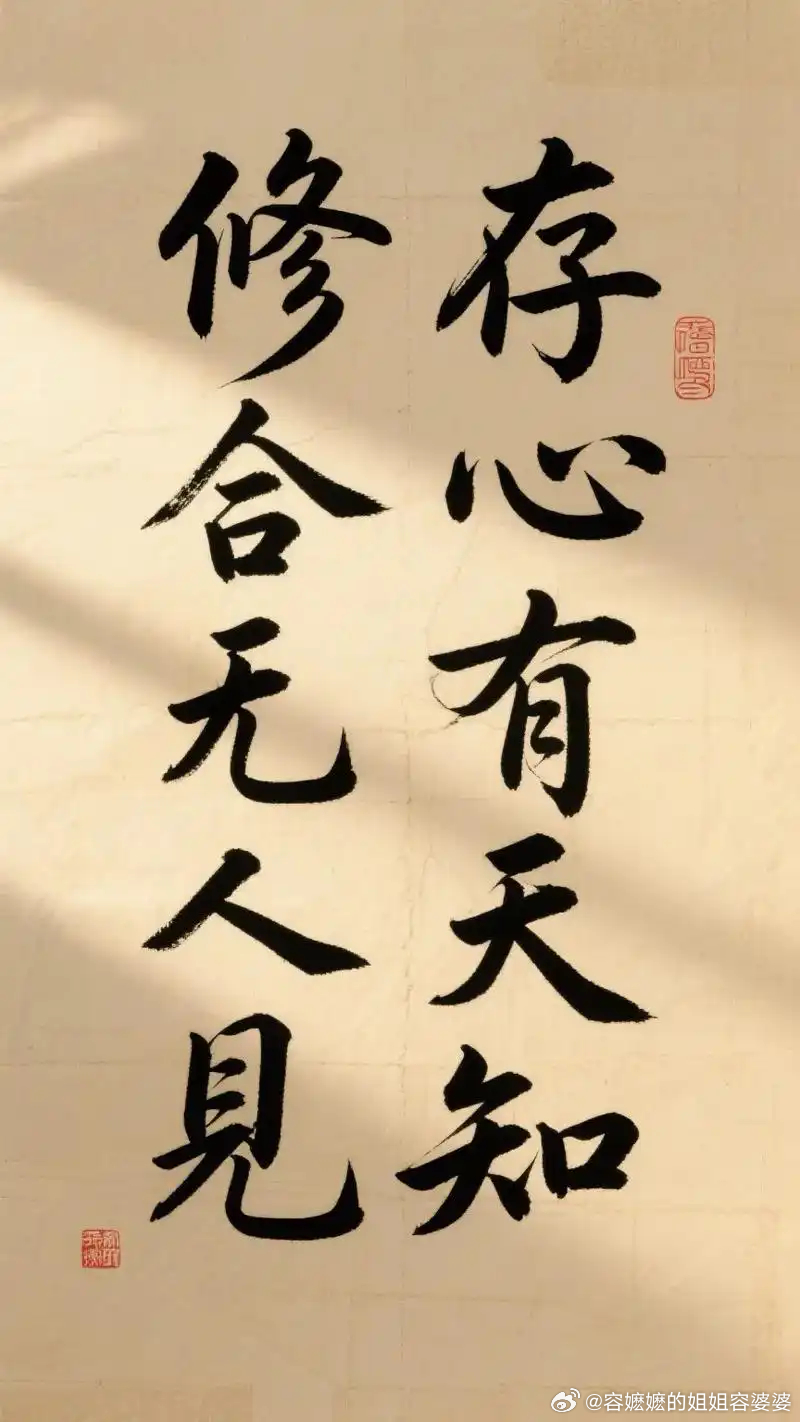 存心有天知
修合无人見
@容嬷嬷的姐姐容婆婆